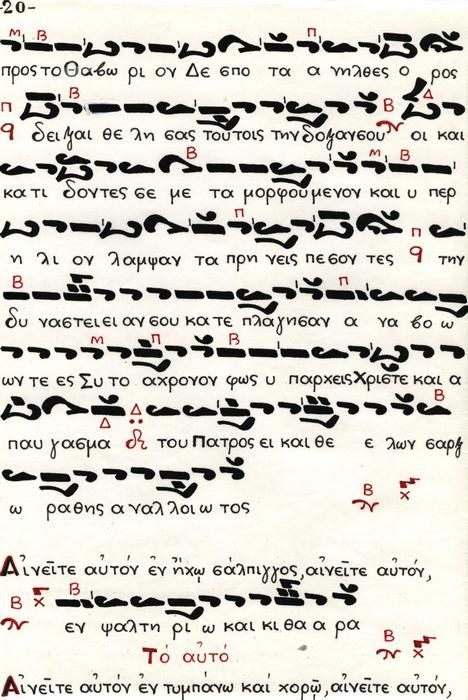 -20-
Μ Β Π
προς το Θαβω ρι ον Δε σπο τα α νηλθες ο ρος
Π Β Β Δ
q δειξαι θε λη σας τούτοις την δοξαν σου οι και
Β Μ Β
κα τι δοντες σε με τα μορφού μενον και υ περ
Π
η λι ον λαμψαν τα πρη νεις πε σον τες Π q την
Β Π
δυ ναστειει αν σου κα τε πλαγησαν α να βο ω
Μ Π Β
ων τε ες Συ το αχρονον φως υ παρχεις Χριστε και α
Δ Δ Β
παυ γασμα του Πατρος ει και θε ε λων σαρξ
ω ραθης α ναλλοι ω τος
Β χ
Αἰνεῖτε αὐτόν ἐν ἤχῳ σάλπιγγος, αἰνεῖτε αὐτόν,
Β χ Β
εν ψαλτη ρι ω και κι θα α ρα
Τό αὐτό Β χ
Αἰνεῖτε αὐτόν ἐν τυμπάνω καί χορῷ, αἰνεῖτε αὐτόν,